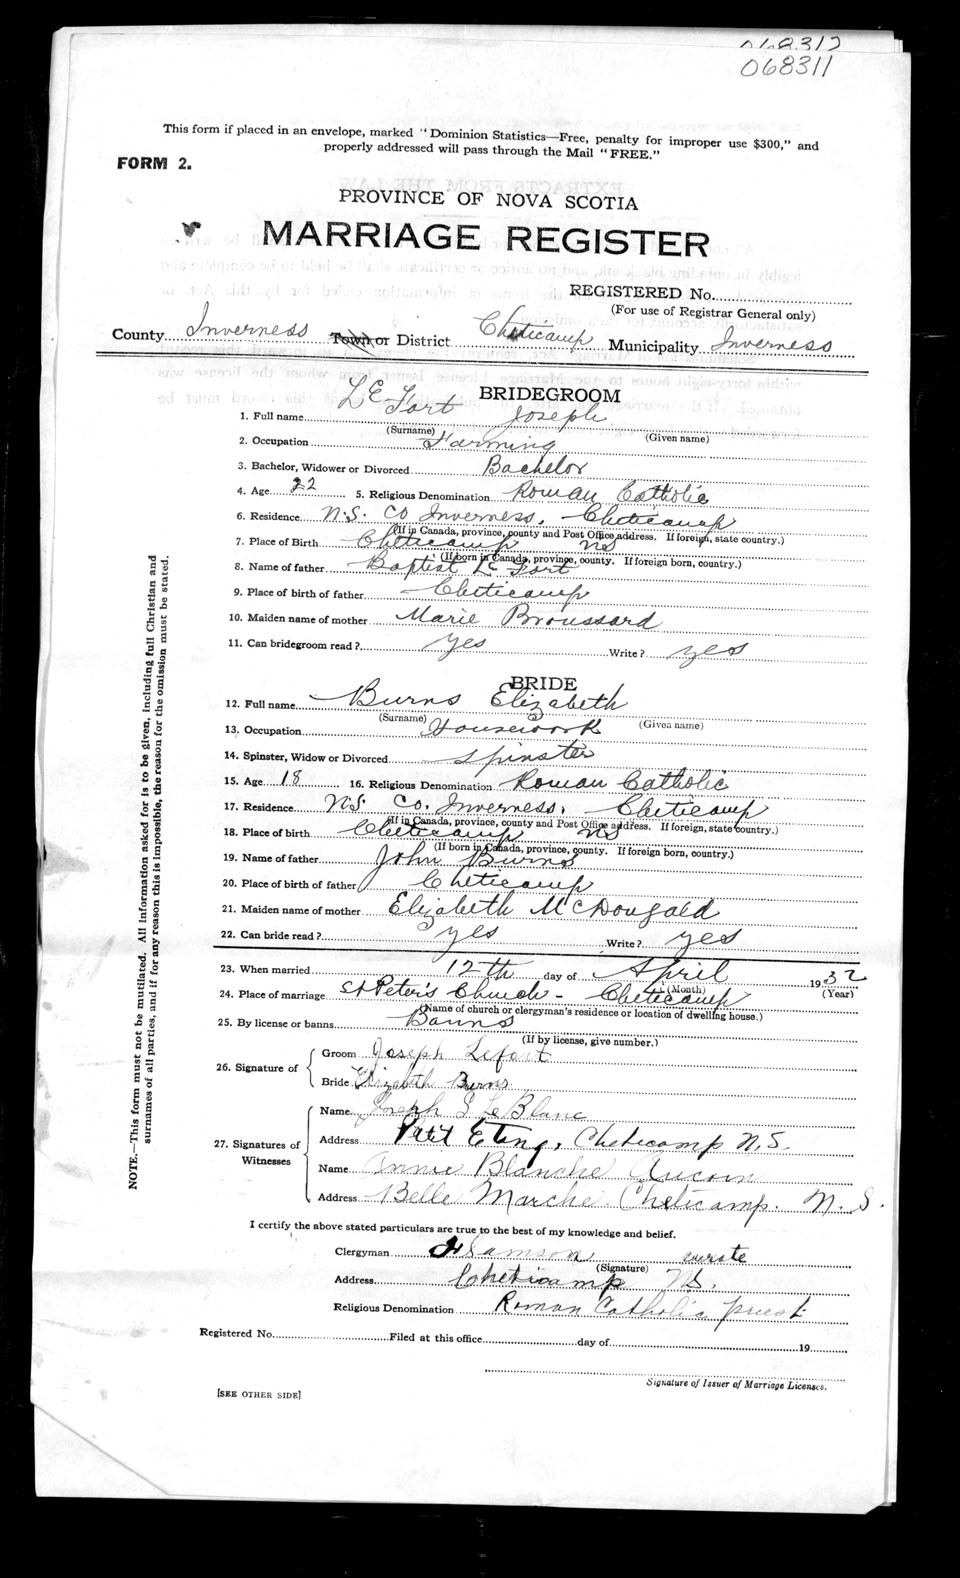 068312
068311
This form if placed in an envelope, marked "Dominion Statistics—Free, penalty for improper use $300," and
properly addressed will pass through the Mail "FREE."
FORM 2.
PROVINCE OF NOVA SCOTIA
MARRIAGE REGISTER
REGISTERED No.
(For use of Registrar General only)
County Inverness Town or District Cheticamp Municipality Inverness
BRIDEGROOM
1. Full name Le Fort Joseph
(Surname) (Given name)
2. Occupation Farming
3. Bachelor, Widower or Divorced Bachelor
4. Age 22 5. Religious Denomination Roman Catholic
6. Residence N.S. Co Inverness, Cheticamp
(If in Canada, province, county and Post Office address. If foreign, state country.)
7. Place of Birth Cheticamp NS
(If born in Canada, province, county. If foreign born, country.)
8. Name of father Baptist Le Fort
9. Place of birth of father Cheticamp
10. Maiden name of mother Marie Broussard
11. Can bridegroom read? yes Write? yes
BRIDE
12. Full name Burns Elizabeth
(Surname) (Given name)
13. Occupation Housework
14. Spinster, Widow or Divorced Spinster
15. Age 18 16. Religious Denomination Roman Catholic
17. Residence N.S. Co. Inverness, Cheticamp
(If in Canada, province, county and Post Office address. If foreign, state country.)
18. Place of birth Cheticamp NS
(If born in Canada, province, county. If foreign born, country.)
19. Name of father John Burns
20. Place of birth of father Cheticamp
21. Maiden name of mother Elizabeth McDougald
22. Can bride read? yes Write? yes
23. When married 12th day of April 1932
(Month) (Year)
24. Place of marriage St Peter's Church - Cheticamp
(Name of church or clergyman's residence or location of dwelling house.)
25. By license or banns Banns
(If by license, give number.)
26. Signature of
Groom Joseph Lefort
Bride Elizabeth Burns
27. Signatures of Witnesses
Name Joseph S LeBlanc
Address Petit Etang, Cheticamp N.S.
Name Annie Blanche Aucoin
Address Belle Marche Cheticamp. N.S.
I certify the above stated particulars are true to the best of my knowledge and belief.
Clergyman Samson curate
(Signature)
Address Cheticamp NS.
Religious Denomination Roman Catholic priest
Registered No. Filed at this office day of 19
Signature of Issuer of Marriage Licenses.
[SEE OTHER SIDE]
NOTE.—This form must not be mutilated. All information asked for is to be given, including full Christian and
surnames of all parties, and if for any reason this is impossible, the reason for the omission must be stated.